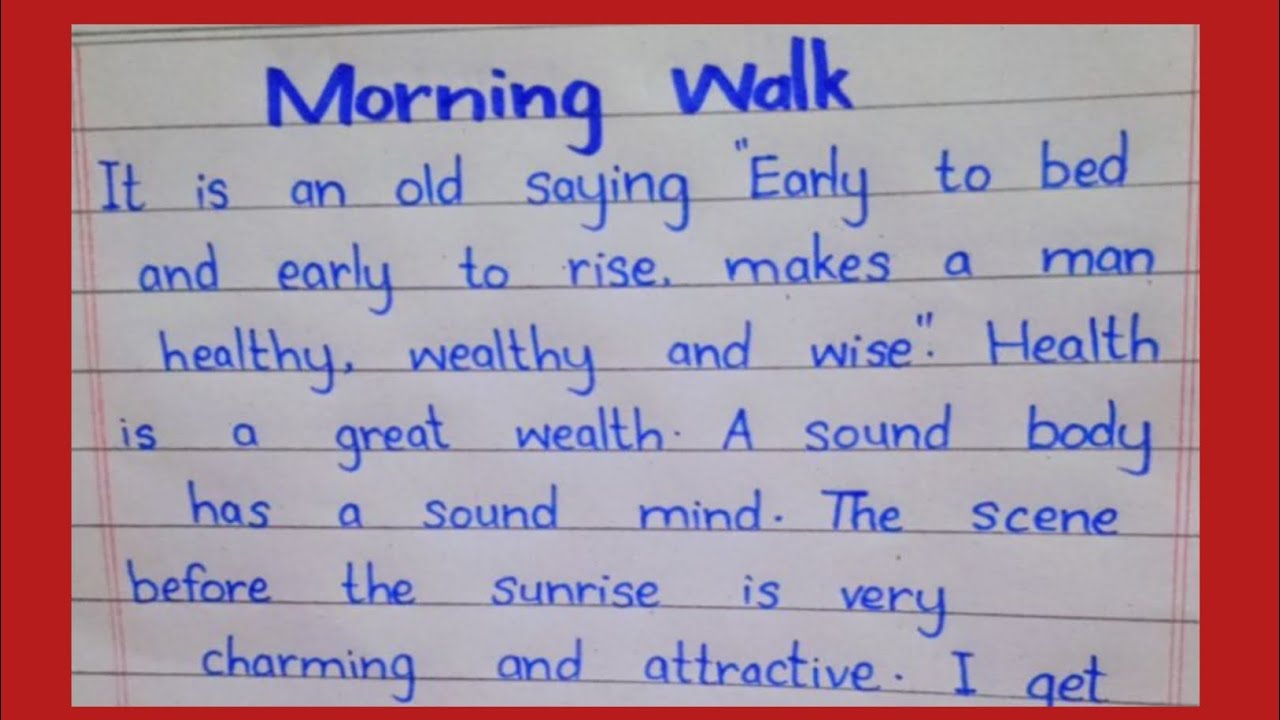 Morning Walk
It is an old saying "Early to bed
and early to rise, makes a man
healthy, wealthy and wise". Health
is a great wealth. A sound body
has a sound mind. The scene
before the sunrise is very
charming and attractive. I get